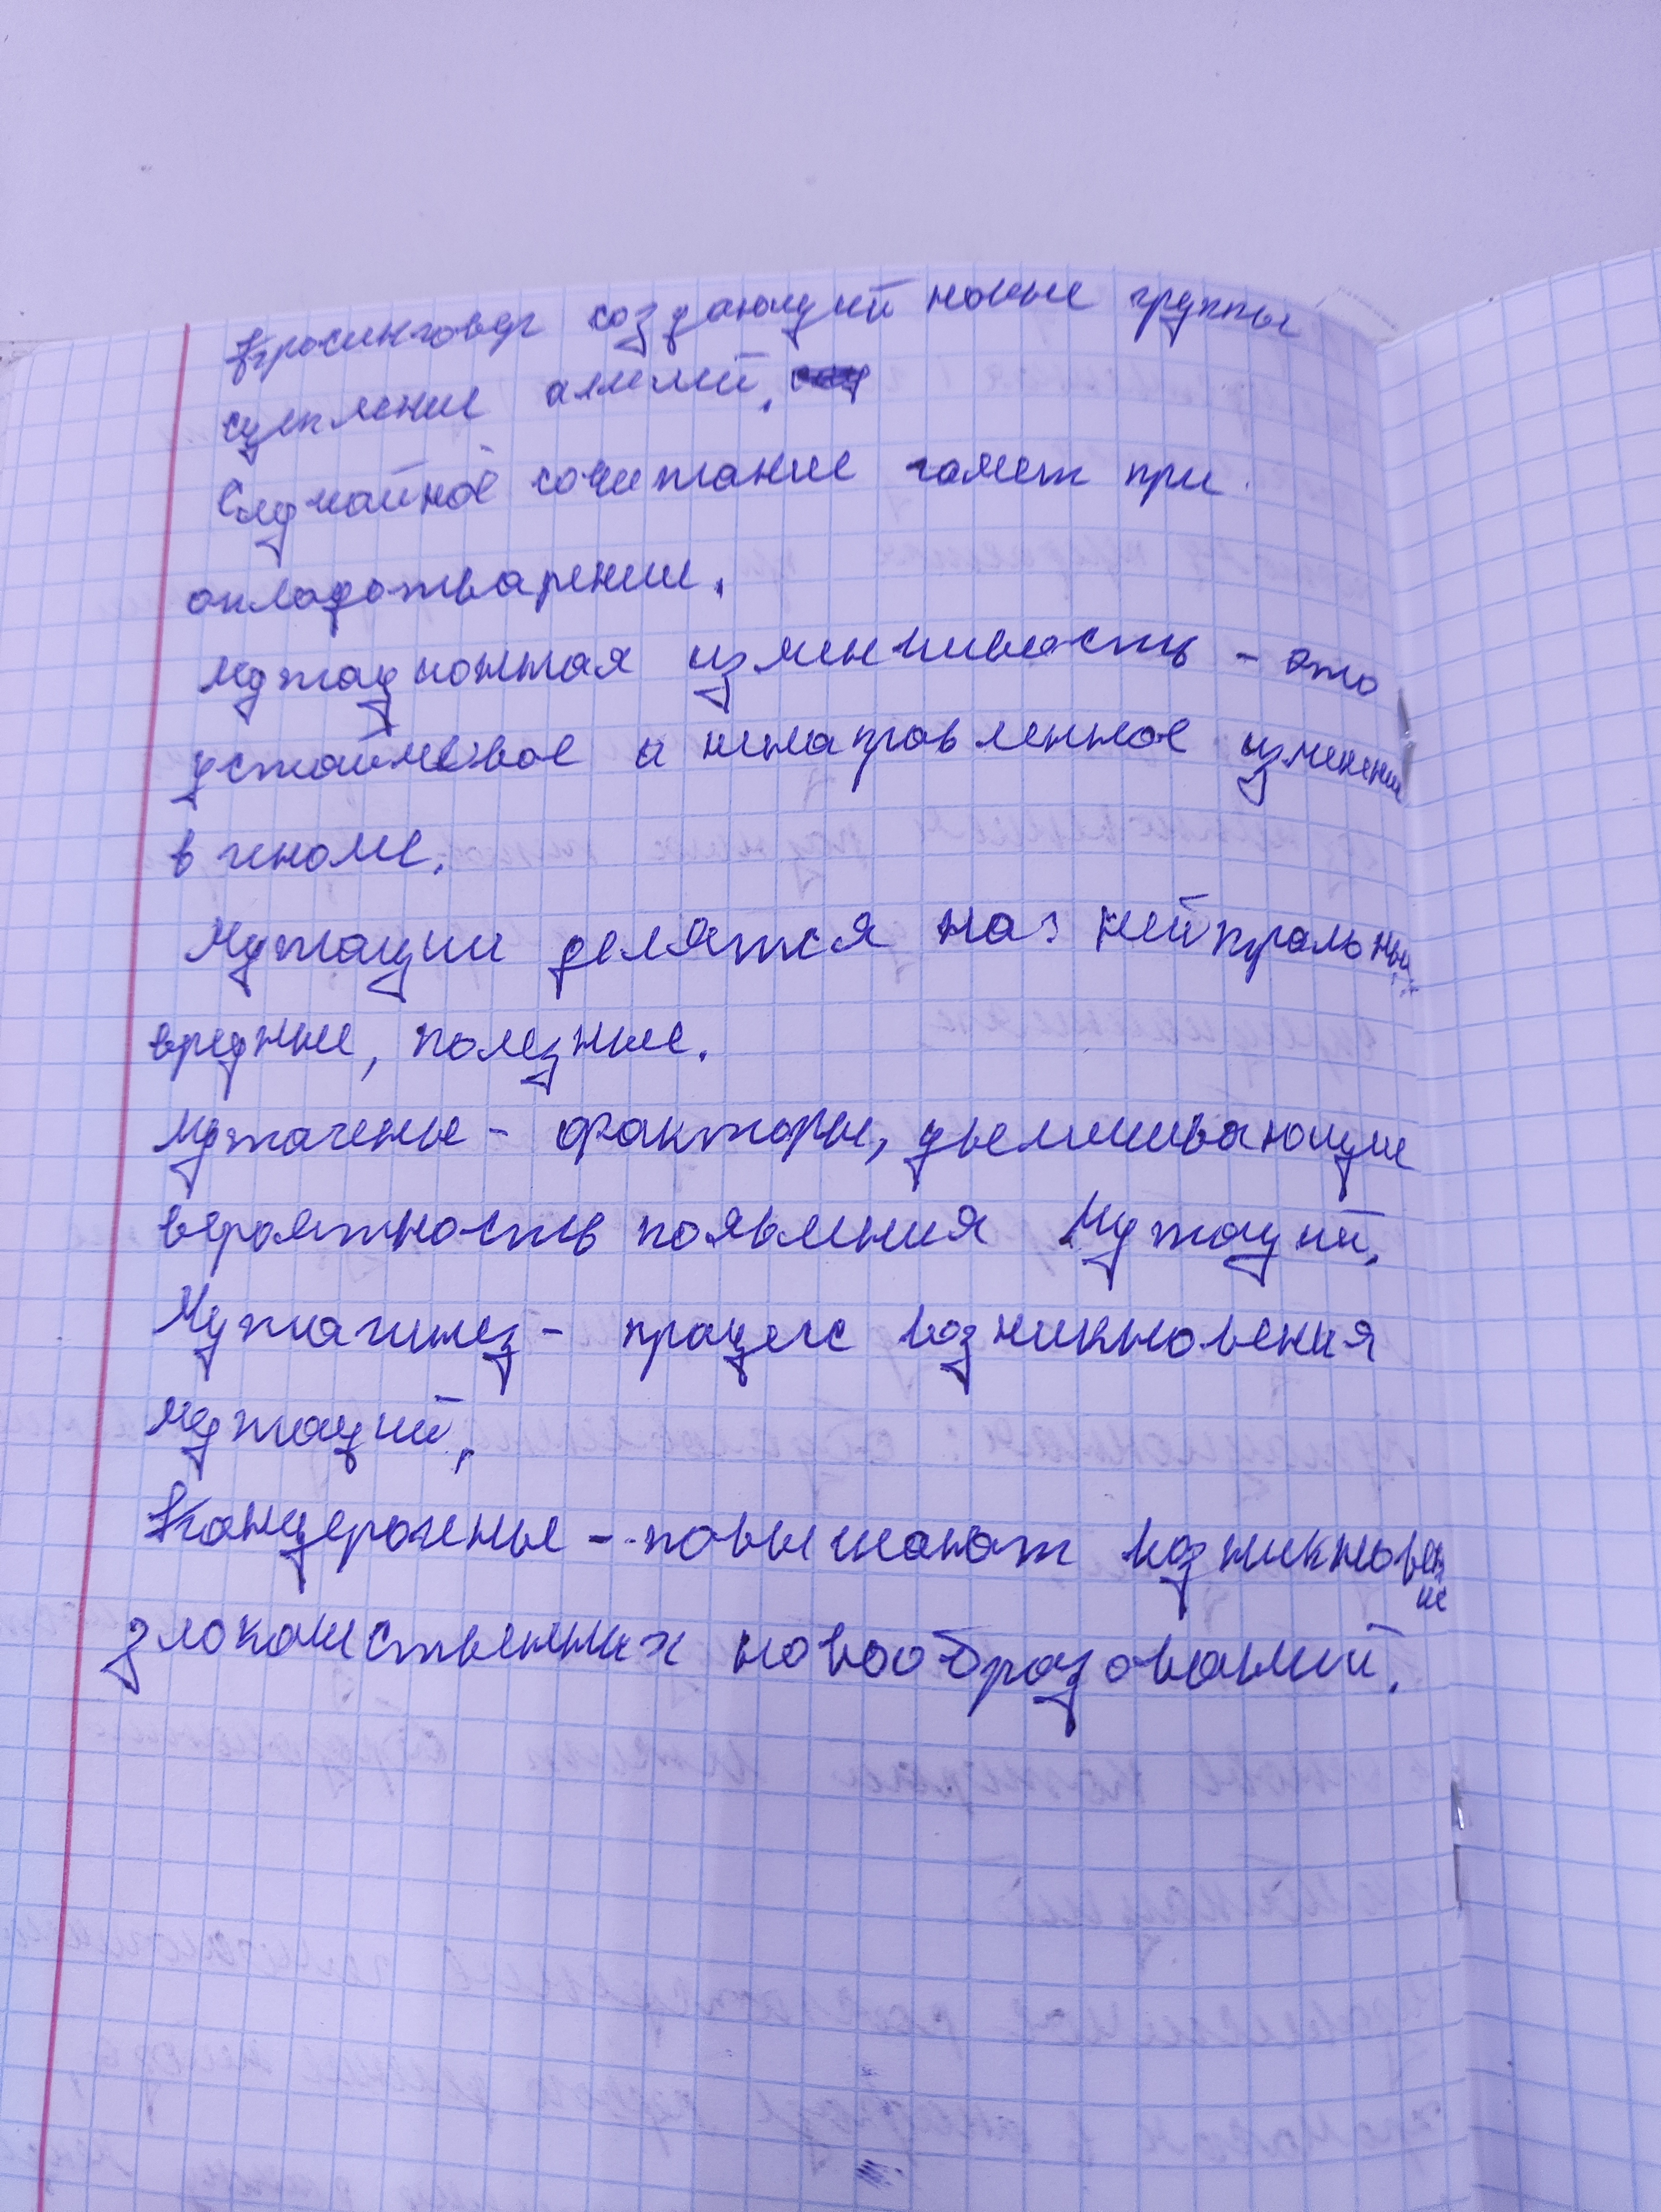 Кросинговер создающий новые группы
сцепление алелий.
Случайное сочитание гамет при
оплодотварении.
Мутационная изменчивость - это
устойчевое и ненаправленное изменени
в геноме.
Мутации делятся на: нейтральные,
вредные, полезные.
Мутагены - факторы, увеличивающие
вероятность появления Мутаций.
Мутагинез - процесс возникновения
мутаций.
Канцерогены - повышают возникновен
ие
злокачественных новообразований.